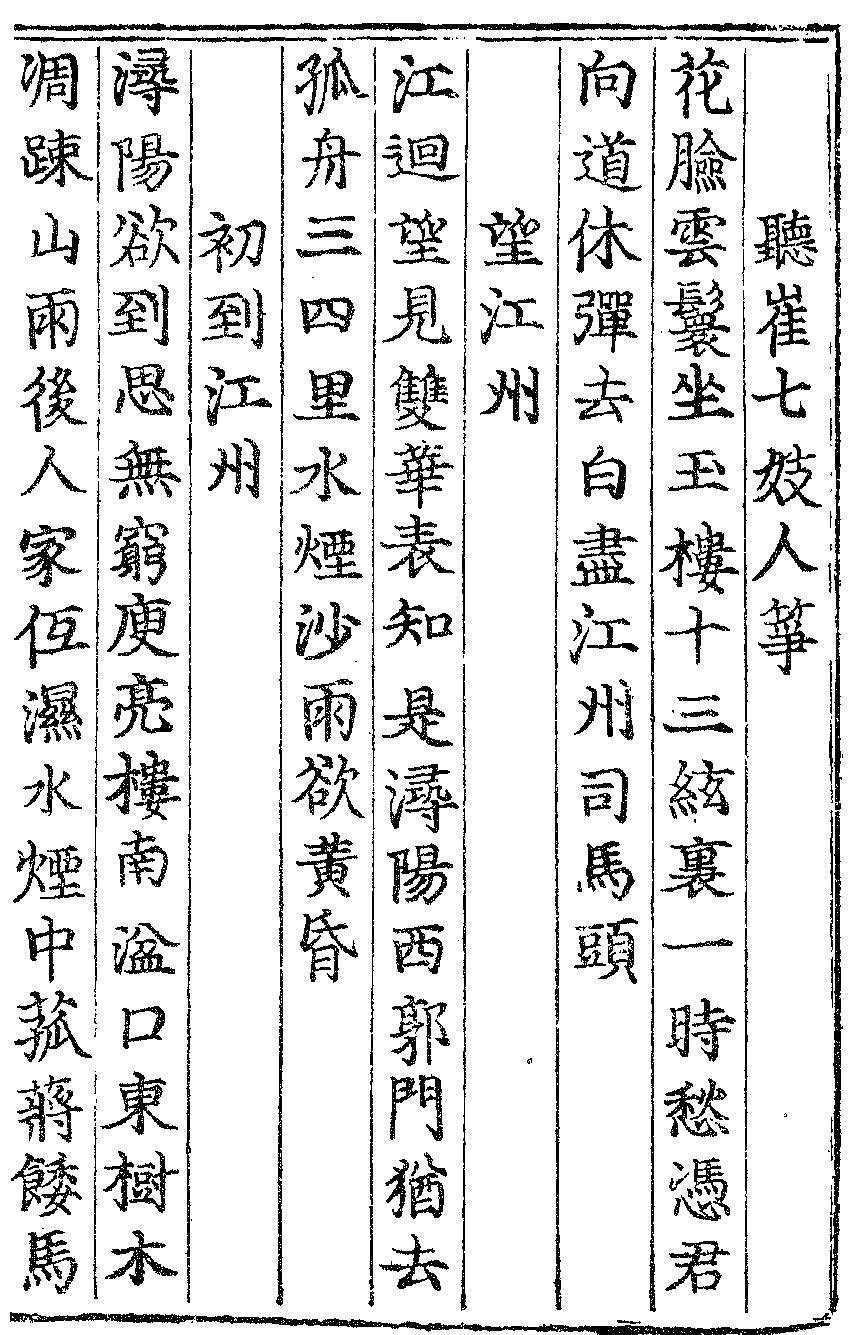 聽崔七妓人箏
花臉雲鬟坐玉樓十三絃裏一時愁憑君
向道休彈去白盡江州司馬頭
望江州
江迴望見雙華表知是潯陽西郭門猶去
孤舟三四里水煙沙雨欲黃昏
初到江州
潯陽欲到思無窮庾亮樓南湓口東樹木
凋踈山雨後人家伍濕水煙中菰蔣餧馬